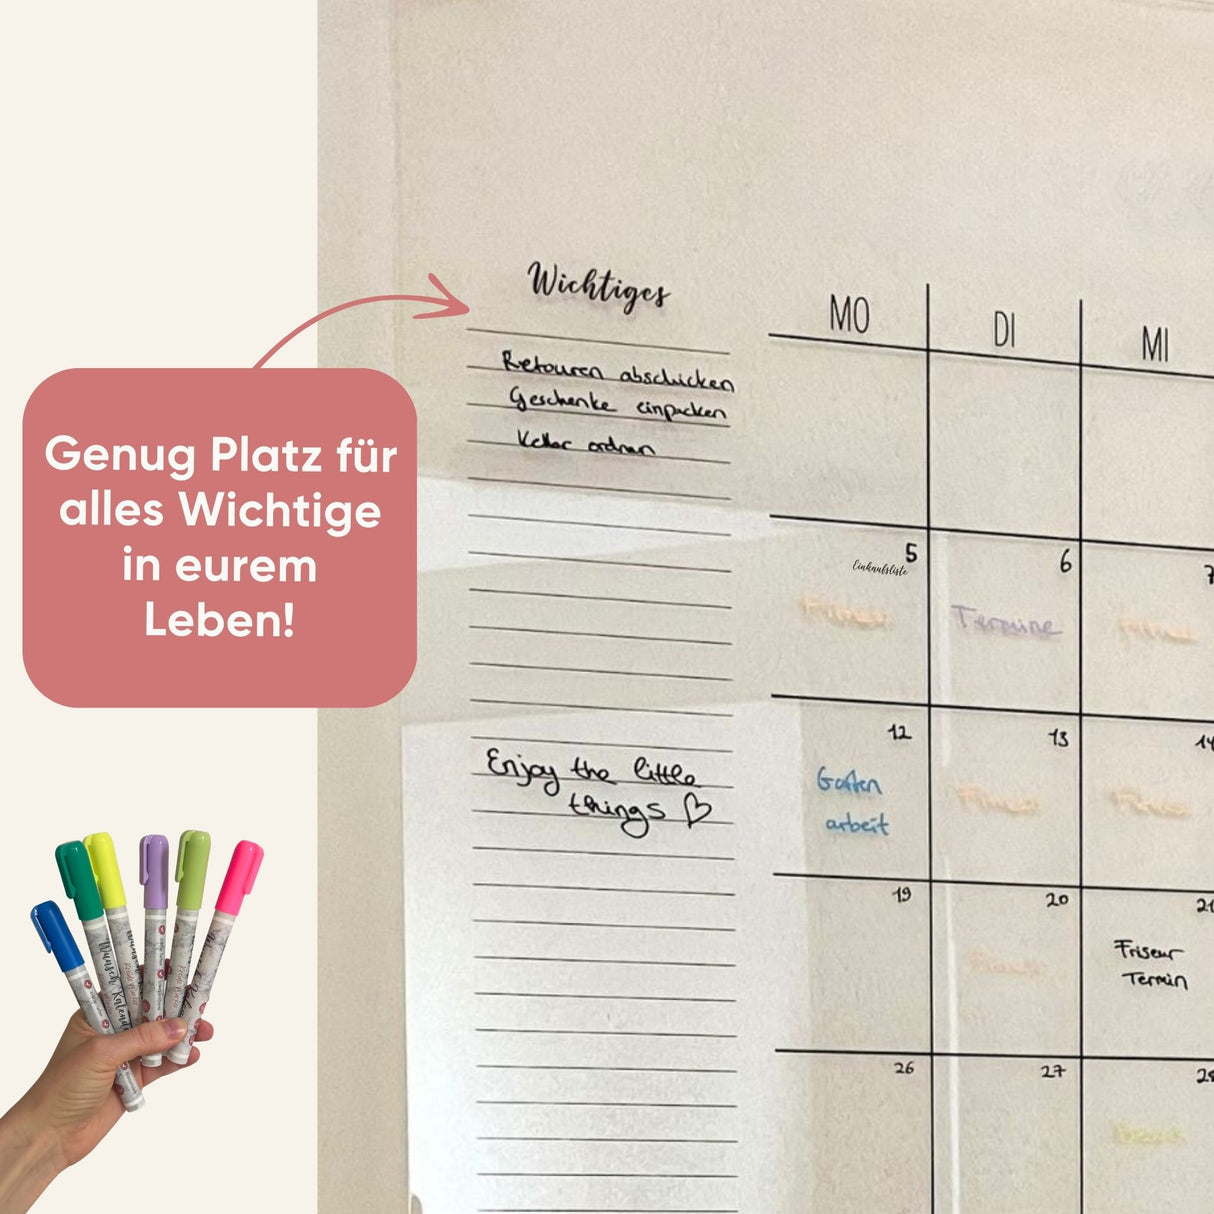 Genug Platz für
alles Wichtige
in eurem
Leben!
Wichtiges
Retouren abschicken
Geschenke einpacken
Keller ordnen
Enjoy the little
things ♡
MO
DI
MI
5
Einkaufsliste
6
7
Termine
12
13
14
Garten
arbeit
19
20
21
Friseur
Termin
26
27
28
Wunsch Kalender